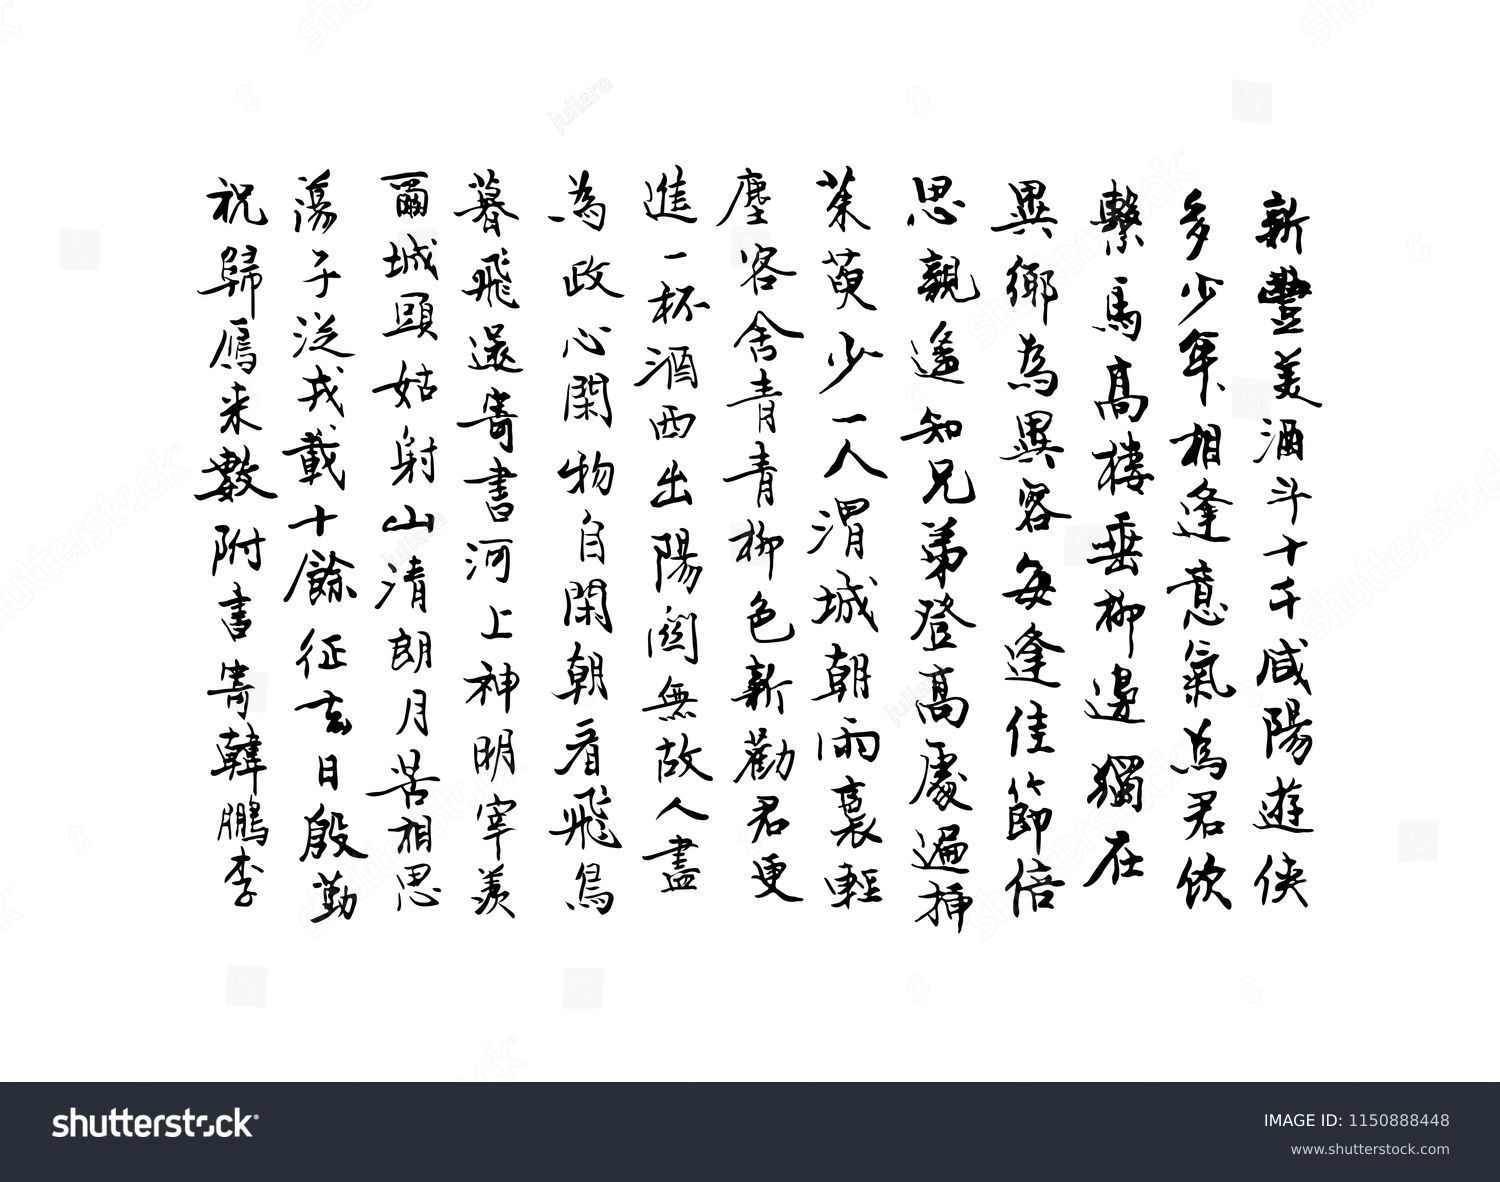 新豐美酒斗十千咸陽遊俠
多少年相逢意氣為君飲
繫馬高樓垂柳邊獨在
異鄉為異客每逢佳節倍
思親遙知兄弟登高處遍插
茱萸少一人渭城朝雨裛輕
塵客舍青青柳色新勸君更
進一杯酒西出陽關無故人盡
為政心閑物自閑朝看飛鳥
暮飛還寄書河上神明宰羨
爾城頭姑射山清朗月苦相思
蕩子從戎載十餘征去日殷勤
祝歸鴈來數附書寄韓鵬李
shutterstock
IMAGE ID: 1150888448
www.shutterstock.com